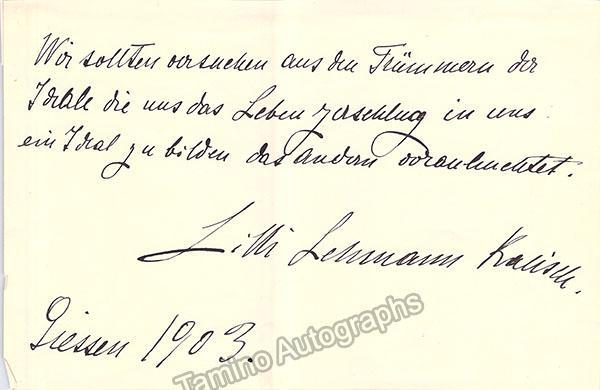 Wir sollten versuchen aus den Trümmern der
Ideale die uns das Leben zerschlug in uns
ein Ideal zu bilden das andern voranleuchtet.
Lilli Lehmann Kalisch.
Giessen 1903.
Tamino Autographs